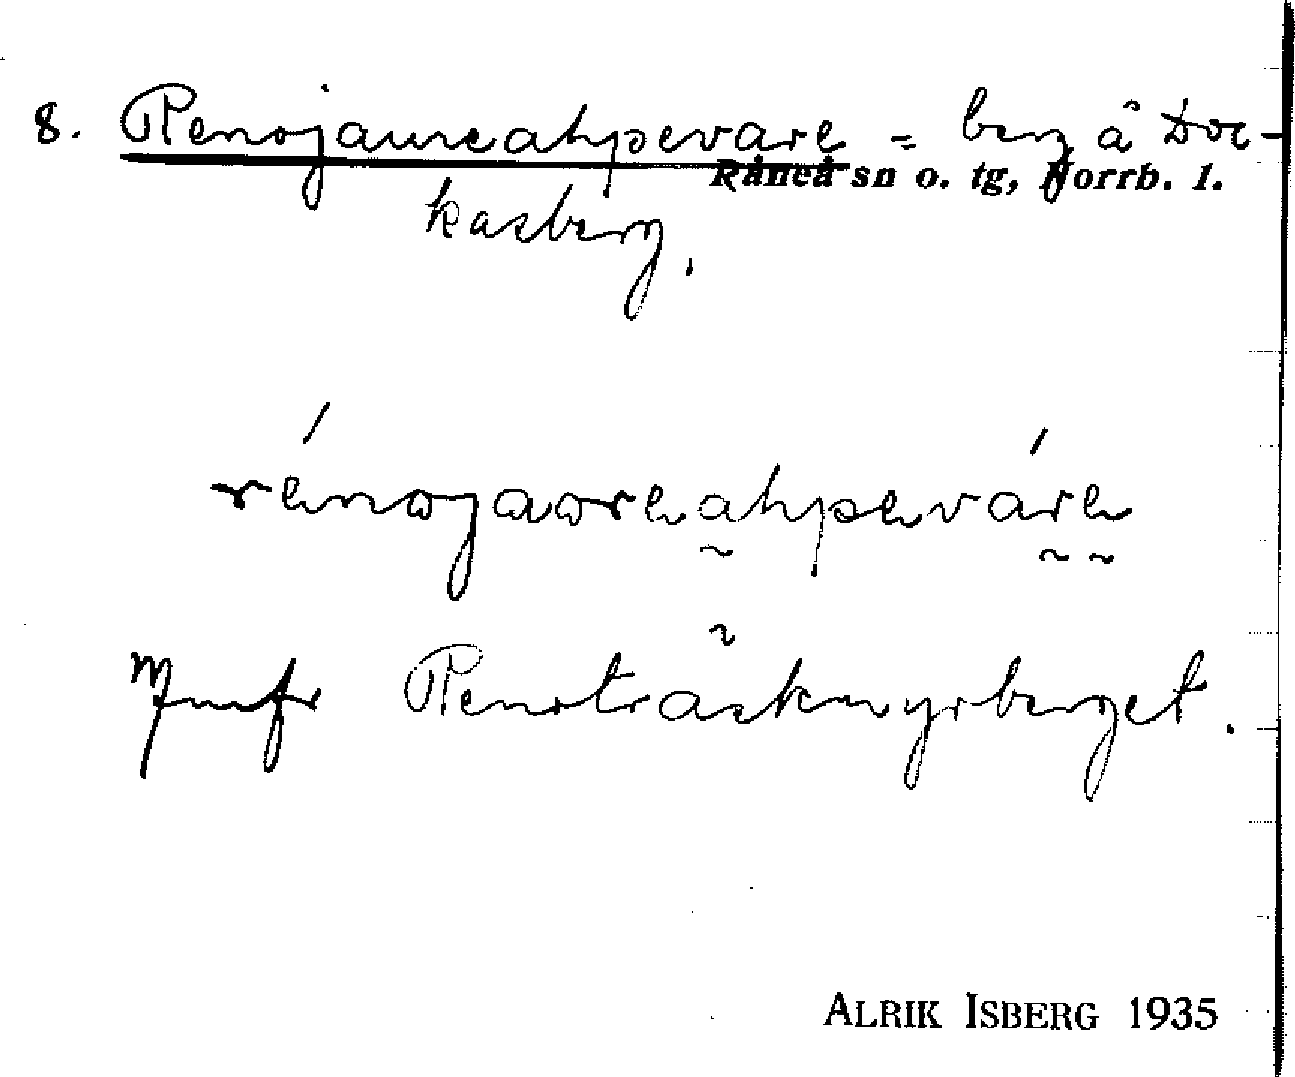 8. Renojaureahpevare = berg å Doc-
Råneå sn o. tg, Norrb. l.
kasberg.
rénojaoreahpeváre
Jmfr Renoträskmyrberget.
ALRIK ISBERG 1935